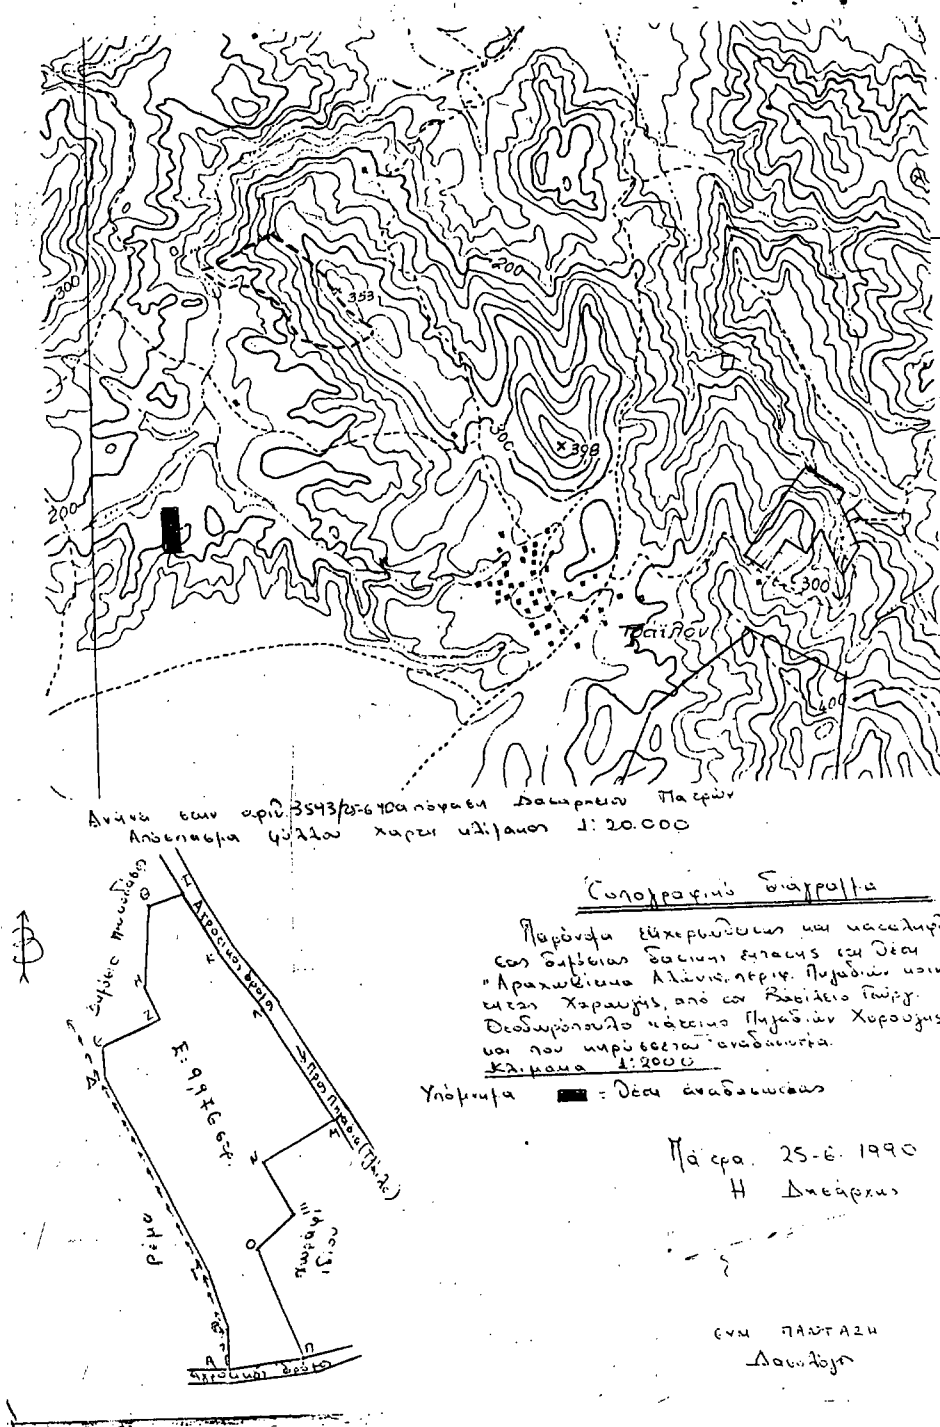 300
353
200
300
398
200
300
Τραϊλον
400
Ανήκει στην αριθ. 3543/25-6-90 απόφαση Δασαρχείου Πατρών
Απόσπασμα φύλλου χάρτη κλίμακος 1:20.000
Τοπογραφικό διάγραμμα
Παράνομα εκχερσωθείσας και καταληφθεί
σας δημόσιας δασικής έκτασης στη θέση
"Αραχωβίτικα Αλώνια, περιφ. Πηγαδιών κοινό
τητας Χαραυγής, από τον Βασίλειο Γεωργ.
Θεοδωρόπουλο κάτοικο Πηγαδιών Χαραυγής
και που κηρύσσεται αναδασωτέα.
Κλίμακα 1:2000
Υπόμνημα = Θέση αναδασώσεως
Πάτρα 25-6-1990
Η Δασάρχης
ΕΥΗ ΠΑΝΤΑΖΗ
Δασολόγος
Αγροτικός δρόμος
Προς Πηγάδια
Ε: 9,976 στρ.
ρέμα
Χωράφι
ιδίου
Θ
Ι
Κ
Λ
Μ
Ν
Ξ
Ο
Π
Α
Β
Δ
Ε
Ζ
Η
αγροτικός δρόμος